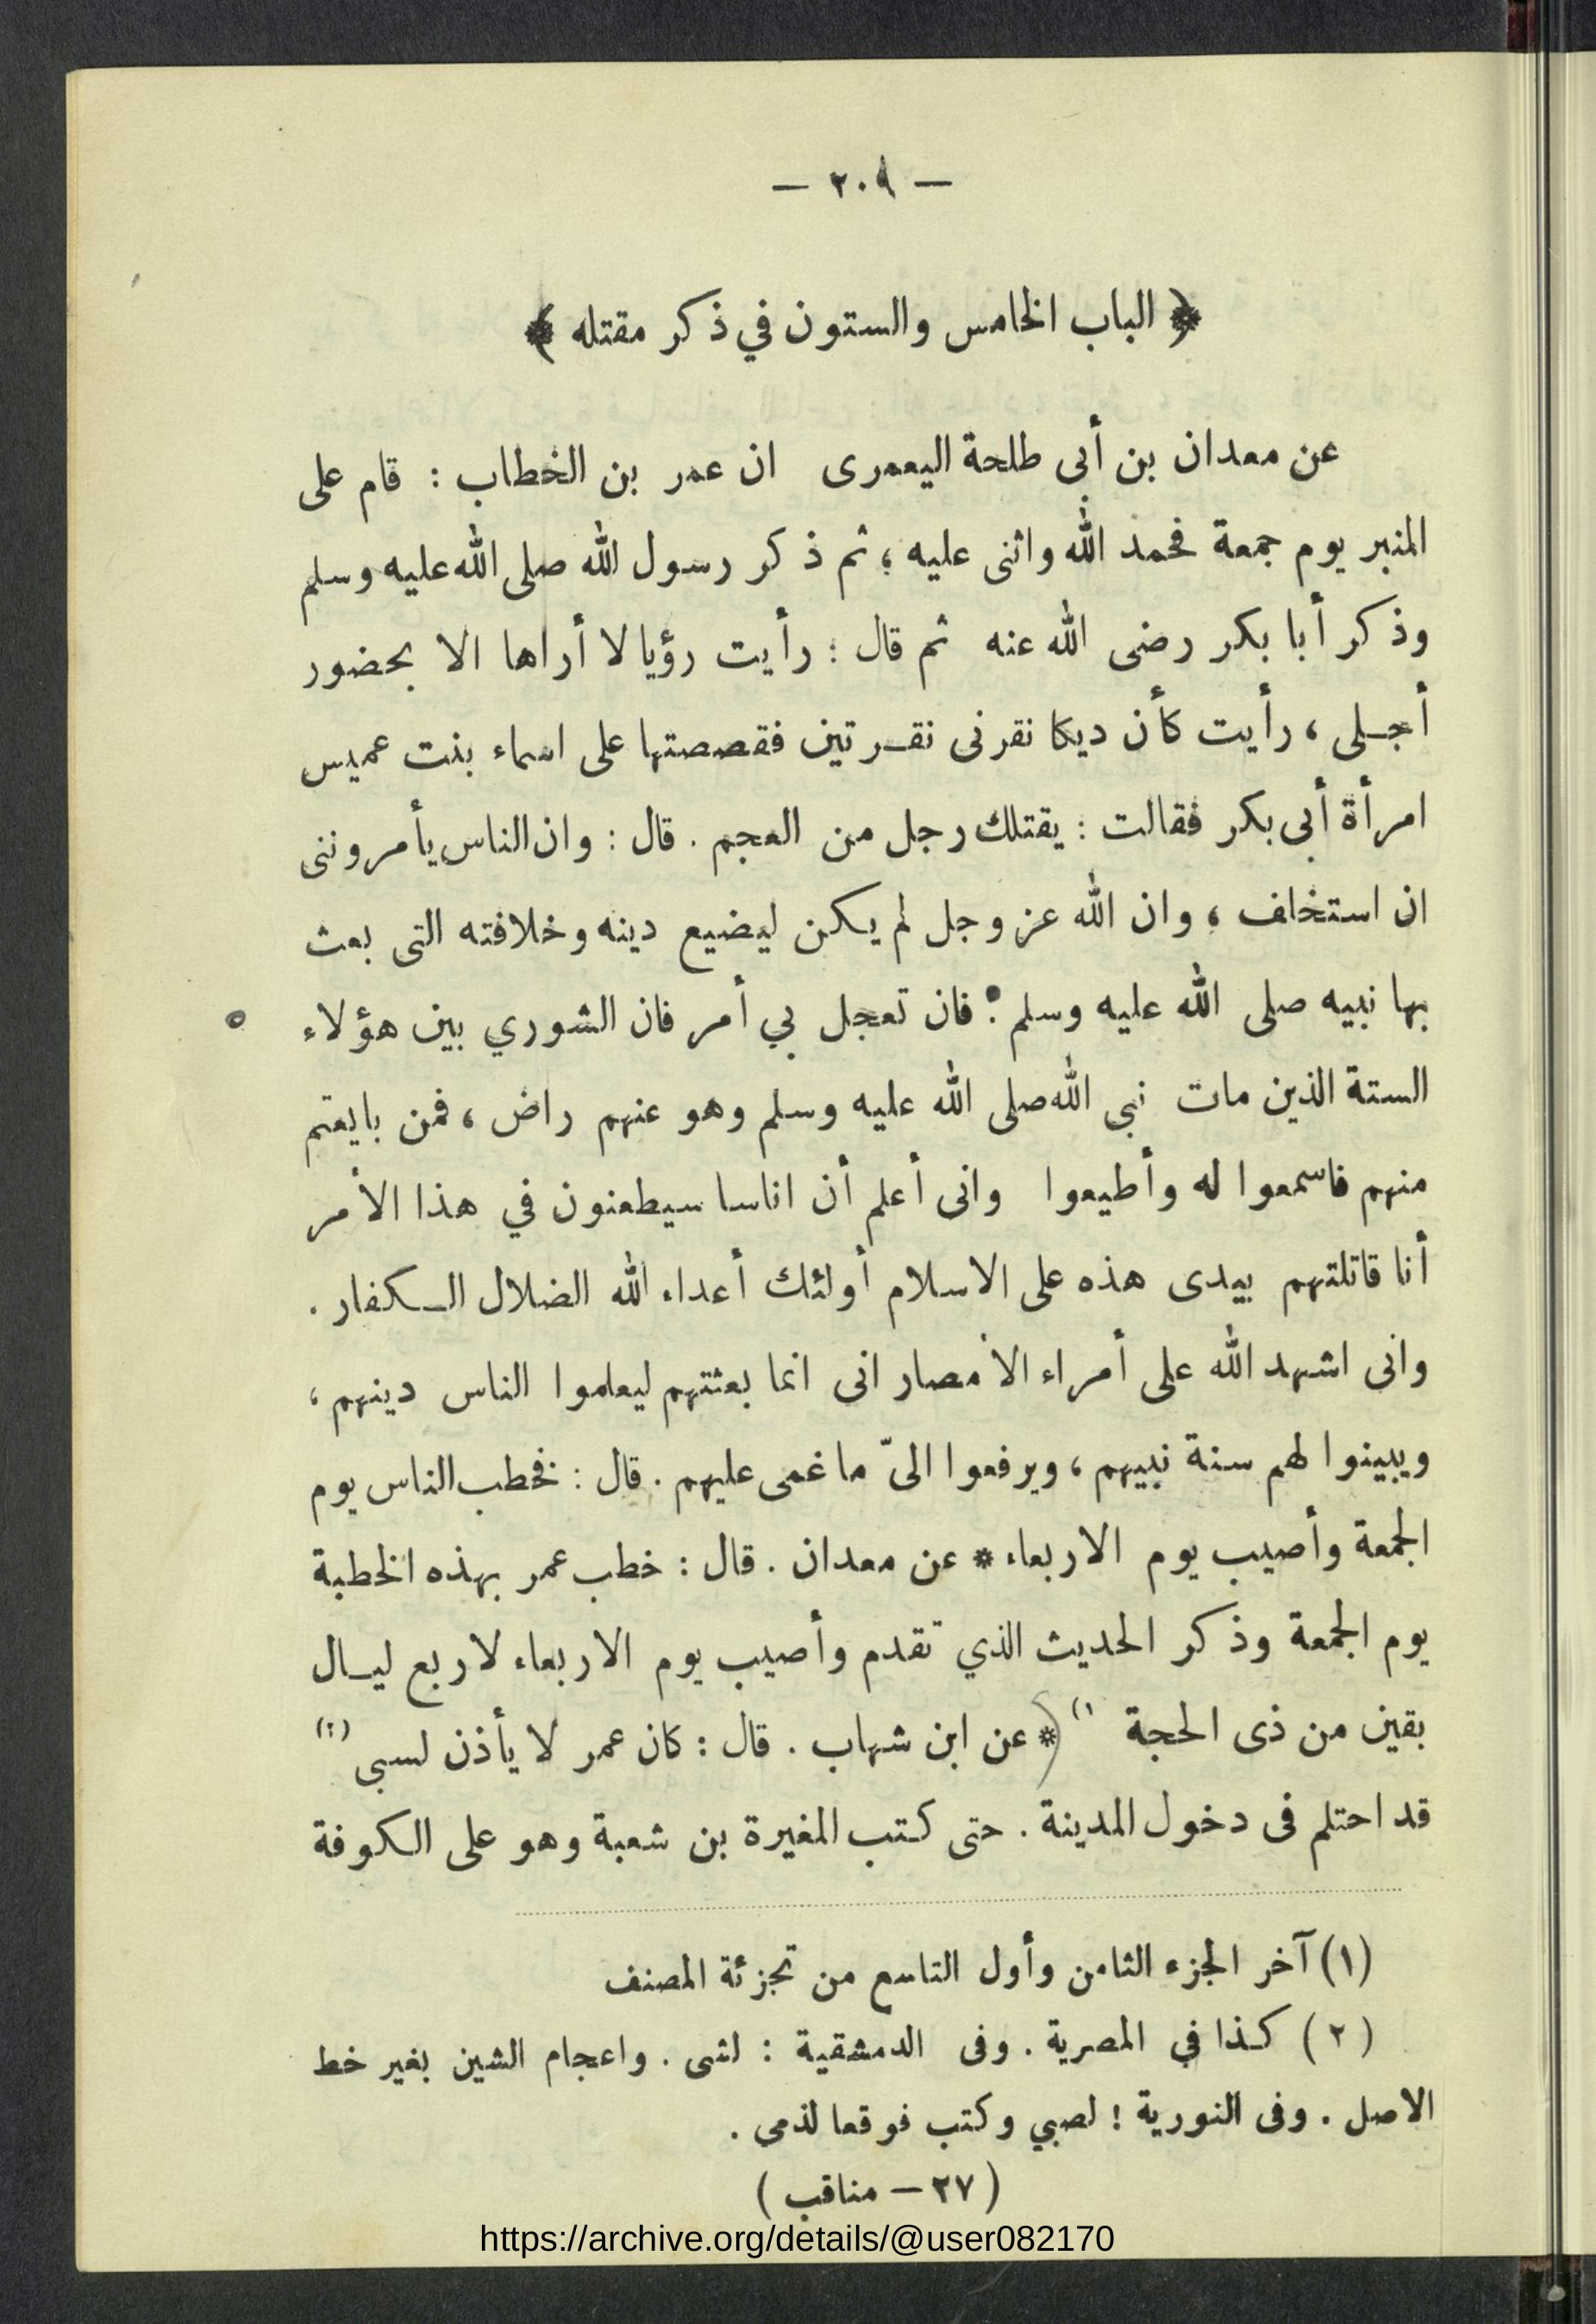 — ٢٠٩ —
﴿ الباب الخامس والستون في ذكر مقتله ﴾
عن معدان بن أبى طلحة اليعمرى ان عمر بن الخطاب : قام على
المنبر يوم جمعة فحمد الله واثنى عليه ؛ ثم ذكر رسول الله صلى الله عليه وسلم
وذكر أبا بكر رضى الله عنه ثم قال : رأيت رؤيا لا أراها الا بحضور
أجلى ، رأيت كأن ديكا نقرنى نقرتين فقصصتها على اسماء بنت عميس
امرأة أبى بكر فقالت : يقتلك رجل من العجم . قال : وان الناس يأمروننى
ان استخلف ، وان الله عز وجل لم يكن ليضيع دينه وخلافته التى بعث
بها نبيه صلى الله عليه وسلم : فان تعجل بي أمر فان الشوري بين هؤلاء
الستة الذين مات نبى الله صلى الله عليه وسلم وهو عنهم راض ، فمن بايعتم
منهم فاسمعوا له وأطيعوا وانى أعلم أن اناسا سيطعنون في هذا الأمر
أنا قاتلتهم بيدى هذه على الاسلام أولئك أعداء الله الضلال الكفار .
وانى اشهد الله على أمراء الأمصار انى انما بعثتهم ليعلموا الناس دينهم ،
ويبينوا لهم سنة نبيهم ، ويرفعوا الىّ ما غمى عليهم . قال : فخطب الناس يوم
الجمعة وأصيب يوم الاربعاء * عن معدان . قال : خطب عمر بهذه الخطبة
يوم الجمعة وذكر الحديث الذي تقدم وأصيب يوم الاربعاء لاربع ليال
بقين من ذى الحجة (١) * عن ابن شهاب . قال : كان عمر لا يأذن لسبى (٢)
قد احتلم فى دخول المدينة . حتى كتب المغيرة بن شعبة وهو على الكوفة
(١) آخر الجزء الثامن وأول التاسع من تجزئة المصنف
(٢) كذا في المصرية . وفى الدمشقية : لشى . واعجام الشين بغير خط
الاصل . وفى النورية : لصبي وكتب فوقعا لذمى .
(٢٧ — مناقب)
https://archive.org/details/@user082170